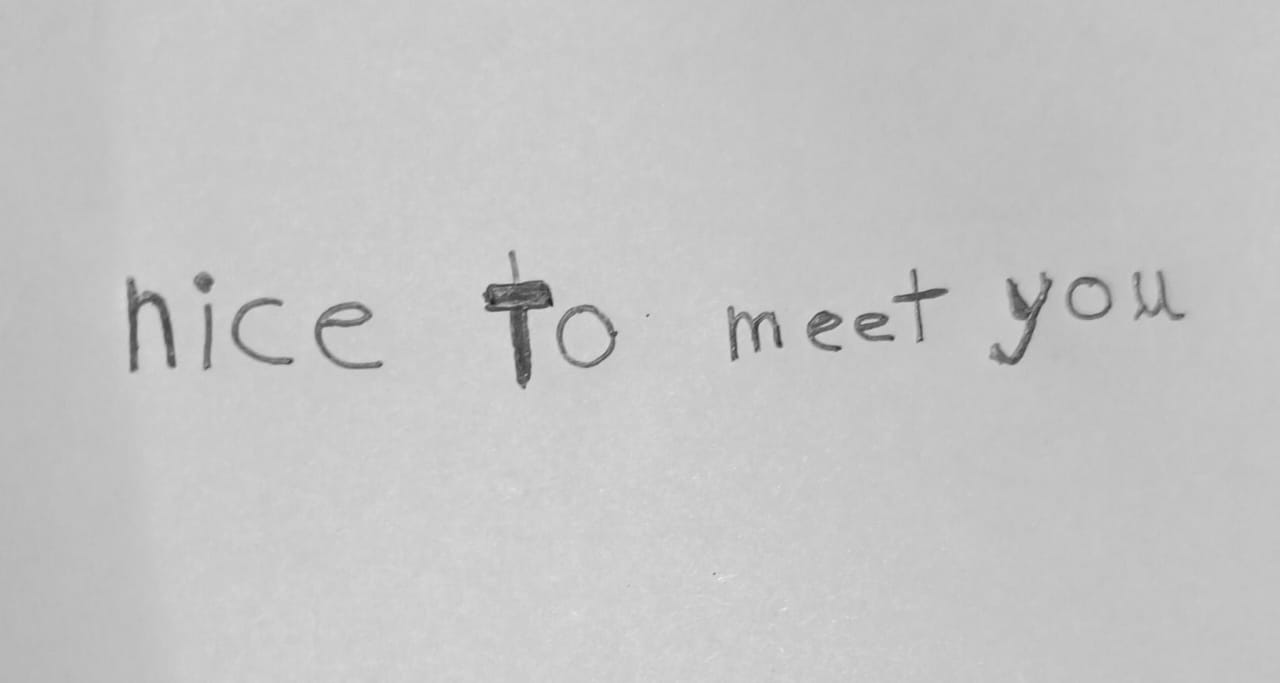 nice to meet you